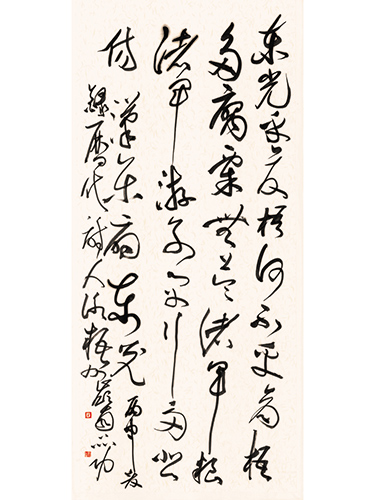 东光乎仓梧何不乎仓梧
多腐粟无益诸军粮
诸军游荡子早行多悲
伤
汉乐府东光 丙申
录历代诗人咏梧州